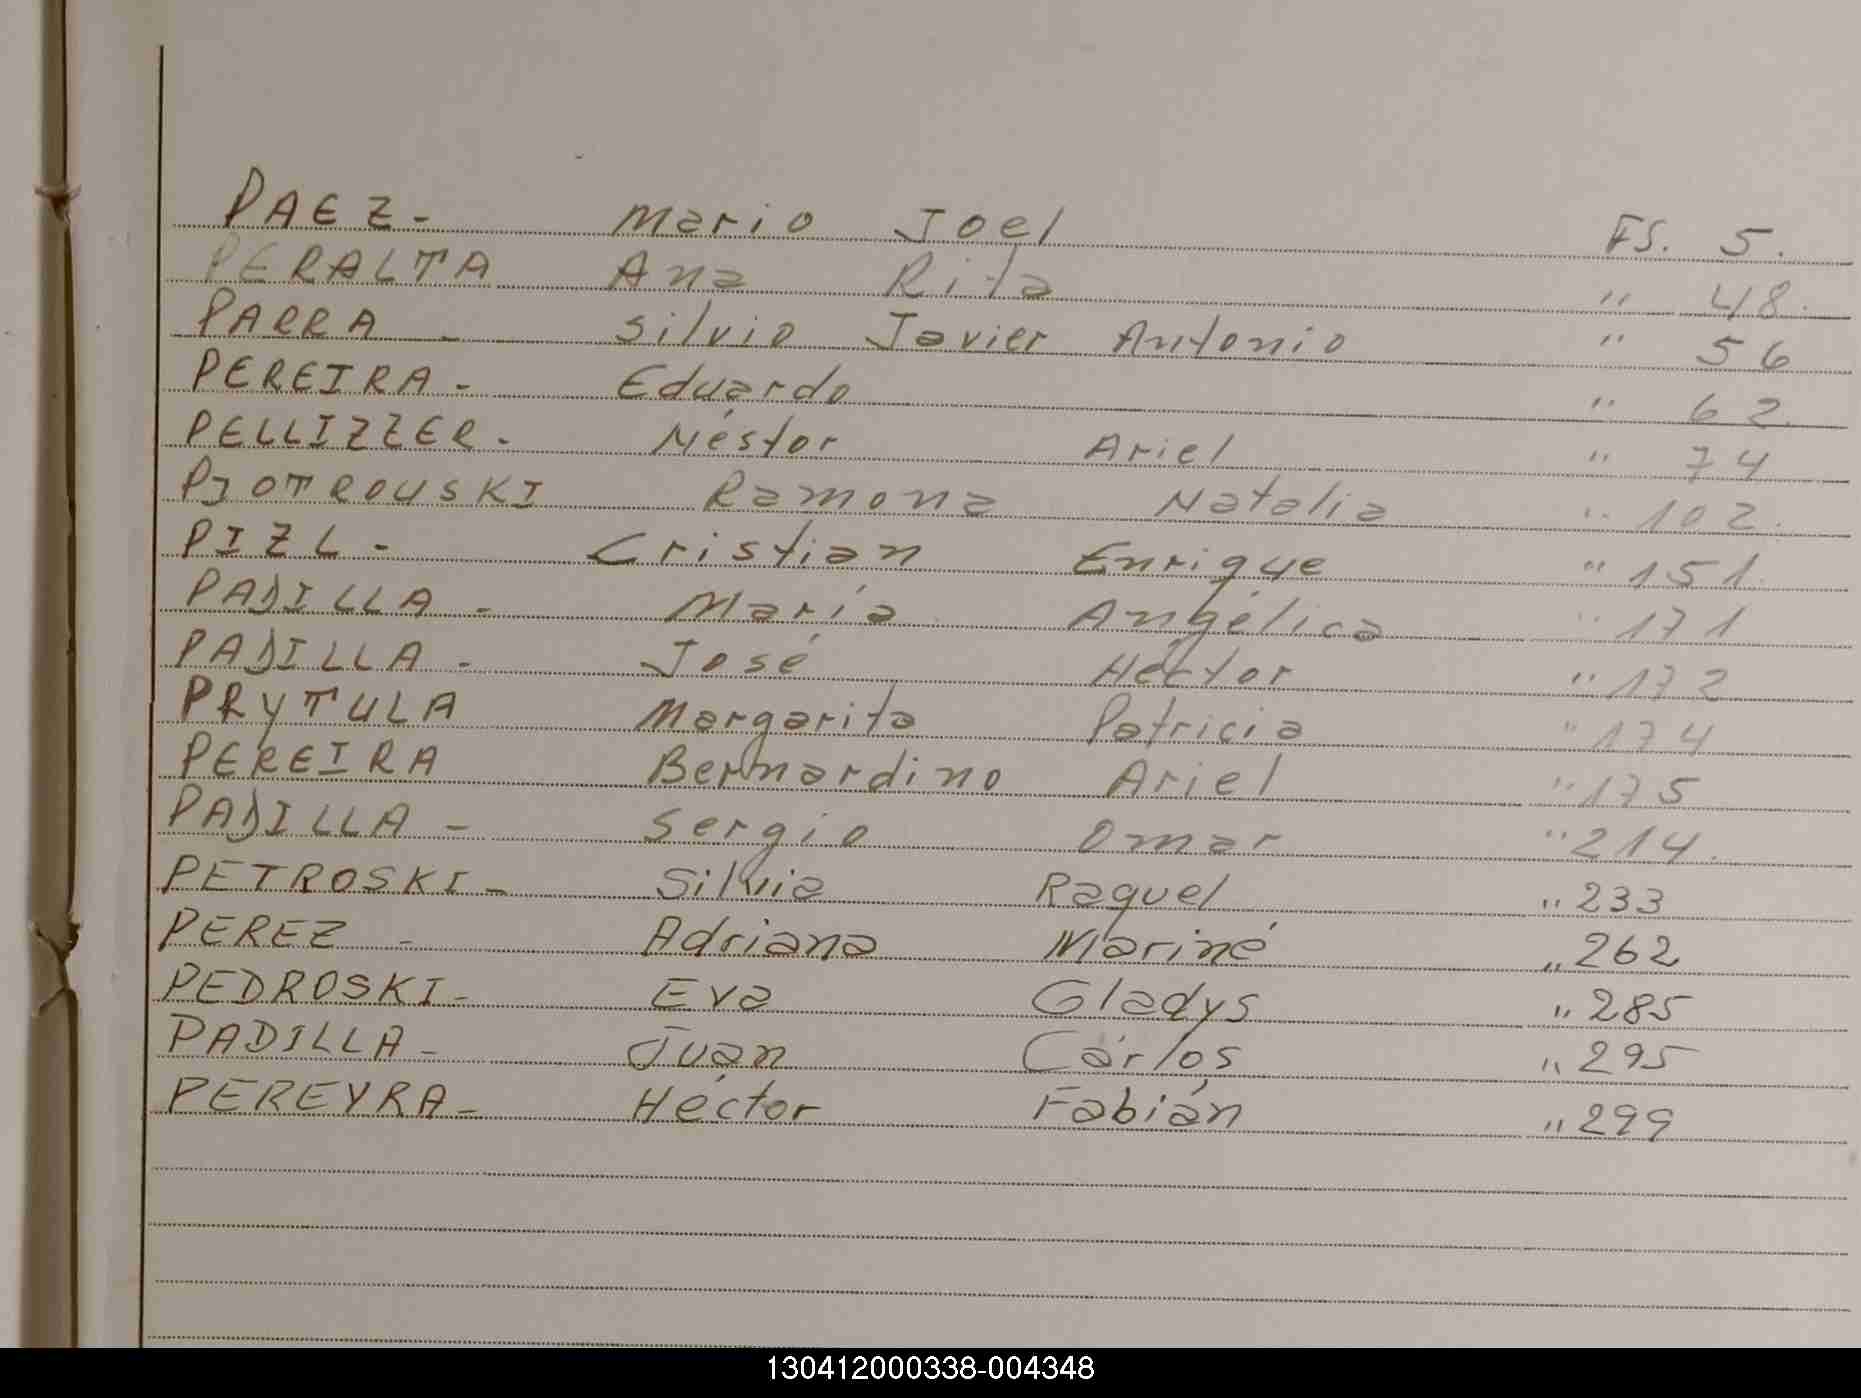 PAEZ- Mario Joel FS. 5.
PERALTA Ana Rita " 48.
PARRA - Silvio Javier Antonio " 56
PEREIRA - Eduardo " 62.
PELLIZZER. Néstor Ariel " 74
PJOTROUSKI Ramona Natalia " 102.
PIZL - Cristian Enrique " 151.
PADILLA - María Angélica " 171
PADILLA - José Héctor " 172
PRYTULA Margarita Patricia " 174
PEREIRA Bernardino Ariel " 175
PADILLA - Sergio Omar " 214.
PETROSKI - Silvia Raquel " 233
PEREZ - Adriana Mariné " 262
PEDROSKI - Eva Gladys " 285
PADILLA - Juan Carlos " 295
PEREYRA - Héctor Fabián " 299
130412000338-004348